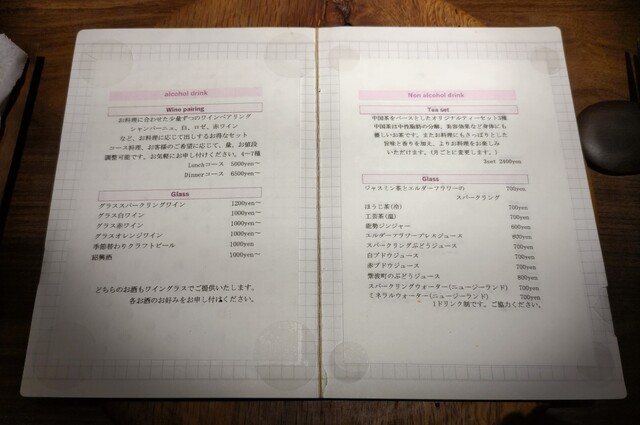 alcohol drink
Wine pairing
お料理に合わせた少量ずつのワインペアリング
シャンパーニュ、白、ロゼ、赤ワイン
など、お料理に応じて出しするお得なセット
コース料理、お客様のご希望に応じて、量、お値段
調整可能です。お気軽にお申し付けください。4~7種
Lunchコース 5000yen~
Dinnerコース 6500yen~
Glass
グラススパークリングワイン 1200yen~
グラス白ワイン 1000yen~
グラス赤ワイン 1000yen~
グラスオレンジワイン 1000yen~
季節替わりクラフトビール 1000yen~
紹興酒 1000yen~
どちらのお酒もワイングラスでご提供いたします。
各お酒のお好みをお申し付けください。
Non alcohol drink
Tea set
中国茶をベースとしたオリジナルティーセット3種
中国茶は中性脂肪の分解、美容効果など身体にも
優しいお茶です。またお料理にもさっぱりとした
旨味と香りを加え、よりお料理をお楽しみ
いただけます。(月ごとに変更します。)
3set 2400yen
Glass
ジャスミン茶とエルダーフラワーの 700yen
スパークリング
ほうじ茶(冷) 700yen
工芸茶(温) 700yen
能勢ジンジャー 600yen
エルダーフラワープレスジュース 800yen
スパークリングぶどうジュース 700yen
白ブドウジュース 700yen
赤ブドウジュース 700yen
紫波町のぶどうジュース 800yen
スパークリングウォーター(ニュージーランド) 700yen
ミネラルウォーター(ニュージーランド) 700yen
1ドリンク制です。ご協力ください。